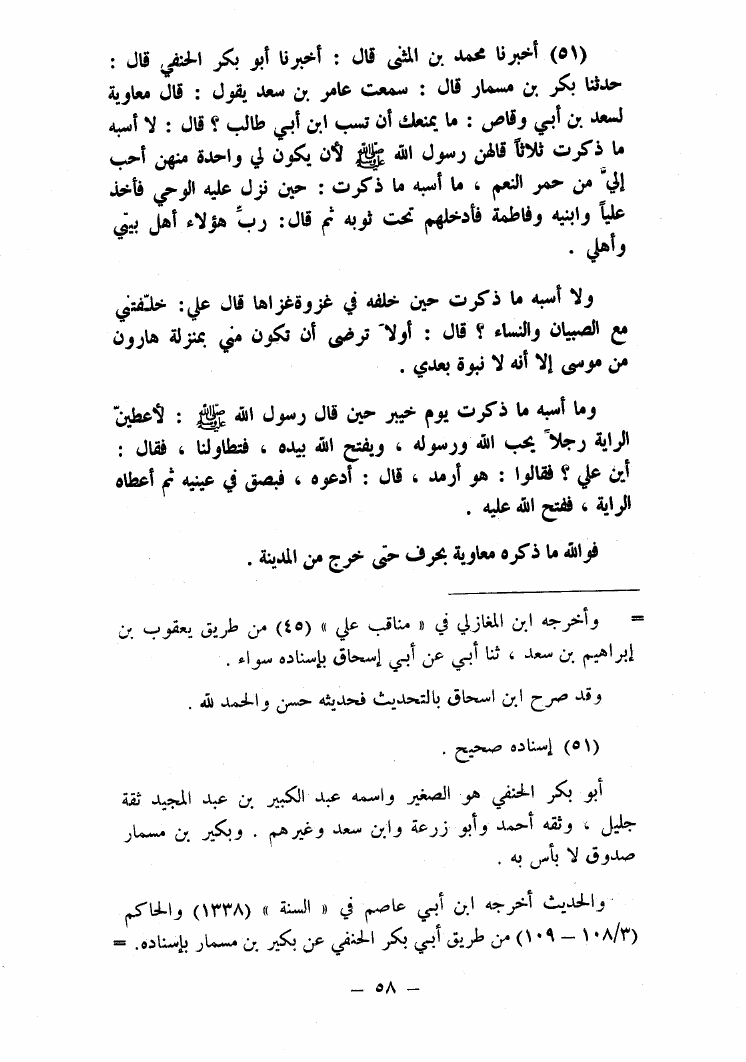 (٥١) أخبرنا محمد بن المثنى قال : أخبرنا أبو بكر الحنفي قال :
حدثنا بكر بن مسمار قال : سمعت عامر بن سعد يقول : قال معاوية
لسعد بن أبي وقاص : ما يمنعك أن تسب ابن أبي طالب ؟ قال : لا أسبه
ما ذكرت ثلاثاً قالهن رسول الله ﷺ لأن يكون لي واحدة منهن أحب
إليَّ من حمر النعم ، ما أسبه ما ذكرت : حين نزل عليه الوحي فأخذ
علياً وابنيه وفاطمة فأدخلهم تحت ثوبه ثم قال: ربِّ هؤلاء أهل بيتي
وأهلي .
ولا أسبه ما ذكرت حين خلفه في غزوة غزاها قال علي: خلّفتني
مع الصبيان والنساء ؟ قال : أولاَ ترضى أن تكون مني بمنزلة هارون
من موسى إلا أنه لا نبوة بعدي .
وما أسبه ما ذكرت يوم خيبر حين قال رسول الله ﷺ : لأعطينّ
الراية رجلاً يحب الله ورسوله ، ويفتح الله بيده ، فتطاولنا ، فقال :
أين علي ؟ فقالوا : هو أرمد ، قال : أدعوه ، فبصق في عينيه ثم أعطاه
الراية ، ففتح الله عليه .
فوالله ما ذكره معاوية بحرف حتى خرج من المدينة .
= وأخرجه ابن المغازلي في « مناقب علي » (٤٥) من طريق يعقوب بن
إبراهيم بن سعد ، ثنا أبي عن أبي إسحاق بإسناده سواء .
وقد صرح ابن اسحاق بالتحديث فحديثه حسن والحمد لله .
(٥١) إسناده صحيح .
أبو بكر الحنفي هو الصغير واسمه عبد الكبير بن عبد المجيد ثقة
جليل ، وثقه أحمد وأبو زرعة وابن سعد وغيرهم . وبكير بن مسمار
صدوق لا بأس به .
والحديث أخرجه ابن أبي عاصم في « السنة » (١٣٣٨) والحاكم
(١٠٨/٣ – ١٠٩) من طريق أبي بكر الحنفي عن بكير بن مسمار بإسناده. =
– ٥٨ –